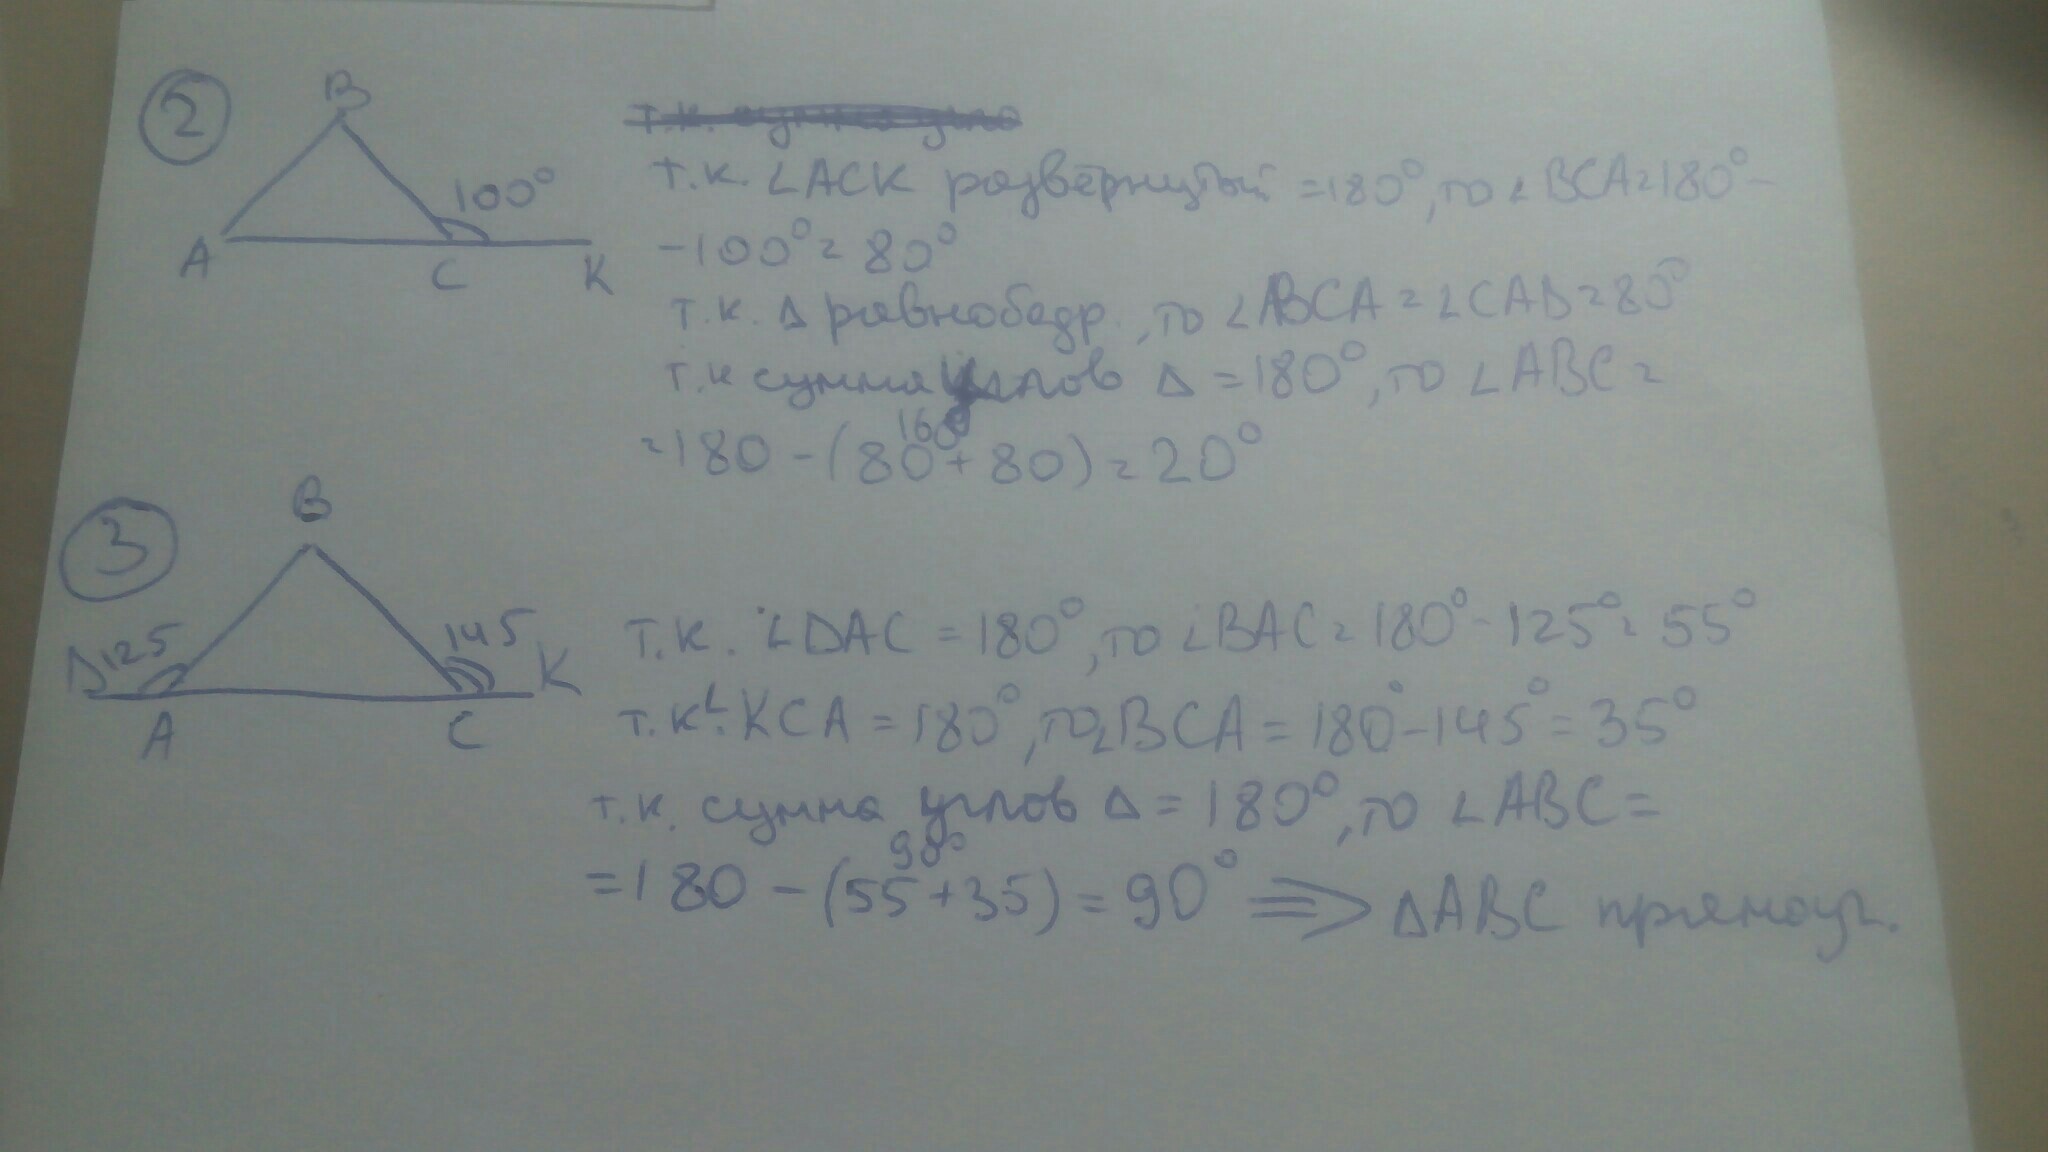 2
B
100°
A
C
K
т.к. сумма угло
т.к. ∠ACK развёрнутый =180°, то ∠BCA=180°-
-100°=80°
т.к. Δ равнобедр., то ∠BCA=∠CAB=80°
т.к сумма углов Δ =180°, то ∠ABC=
160°
=180-(80+80)=20°
3
B
D 125
145
K
A
C
т.к. ∠DAC =180°, то ∠BAC=180°-125°=55°
т.к ∠KCA =180°, то ∠BCA=180°-145°=35°
т.к. сумма углов Δ=180°, то ∠ABC=
90°
=180-(55+35)=90° ⟹ ΔABC прямоуг.